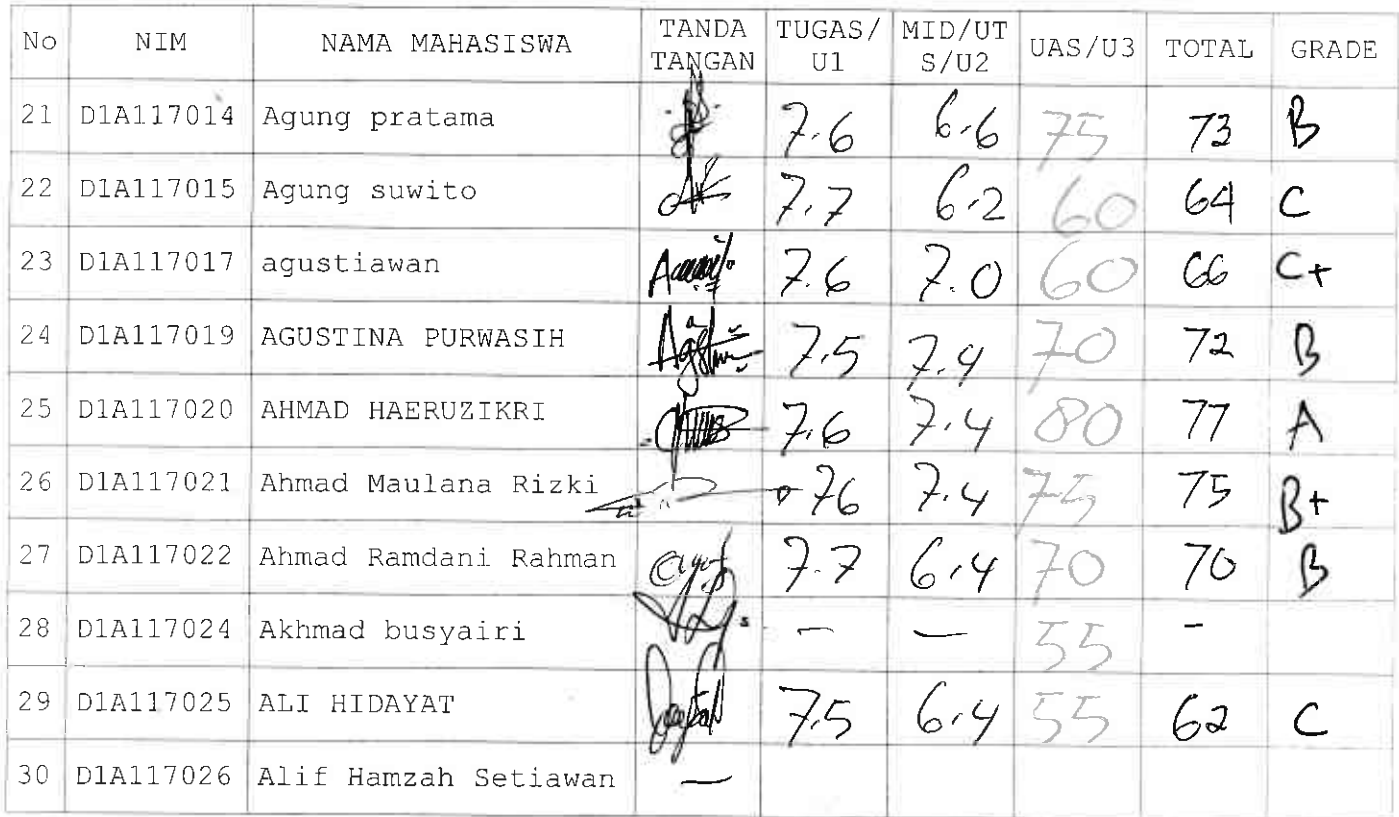 No NIM NAMA MAHASISWA TANDA TANGAN TUGAS/U1 MID/UTS/U2 UAS/U3 TOTAL GRADE
21 D1A117014 Agung pratama 7.6 6.6 75 73 B
22 D1A117015 Agung suwito 7.7 6.2 60 64 C
23 D1A117017 agustiawan 7.6 7.0 60 66 C+
24 D1A117019 AGUSTINA PURWASIH 7.5 7.4 70 72 B
25 D1A117020 AHMAD HAERUZIKRI 7.6 7.4 80 77 A
26 D1A117021 Ahmad Maulana Rizki 76 7.4 75 75 B+
27 D1A117022 Ahmad Ramdani Rahman 7.7 6.4 70 70 B
28 D1A117024 Akhmad busyairi — — 55 -
29 D1A117025 ALI HIDAYAT 7.5 6.4 55 62 C
30 D1A117026 Alif Hamzah Setiawan —